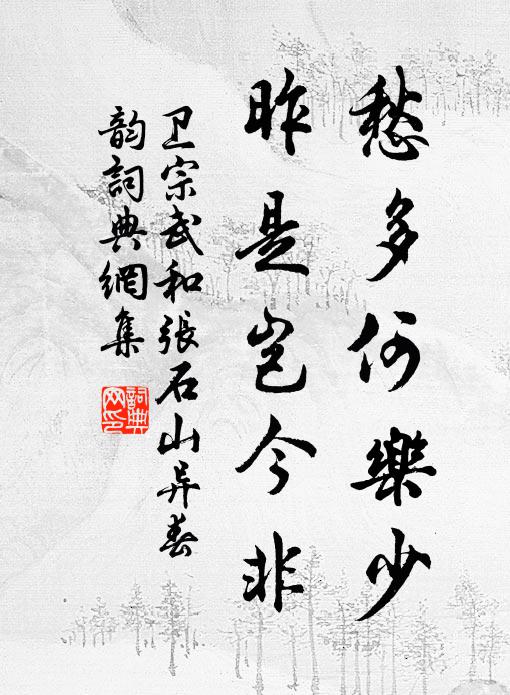 愁多何樂少
昨是岂今非
卫宗武和張石山异春
韵詞典網集
詞典
网印